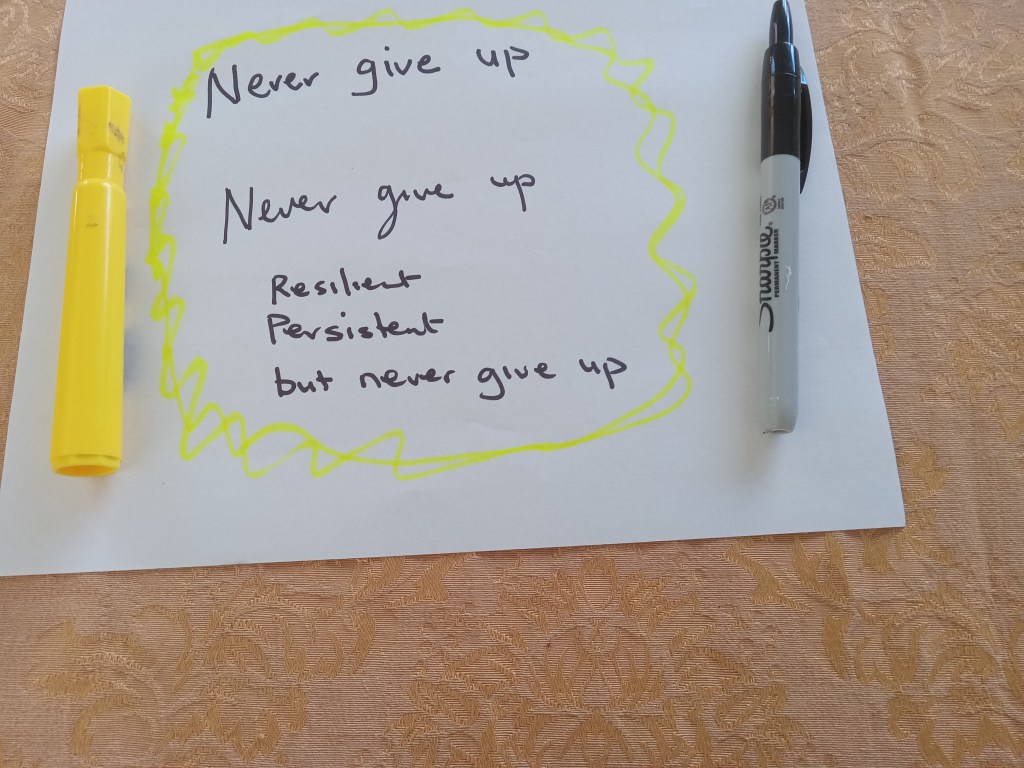 Never give up
Never give up
Resilient
Persistent
but never give up
Sharpie
PERMANENT MARKER